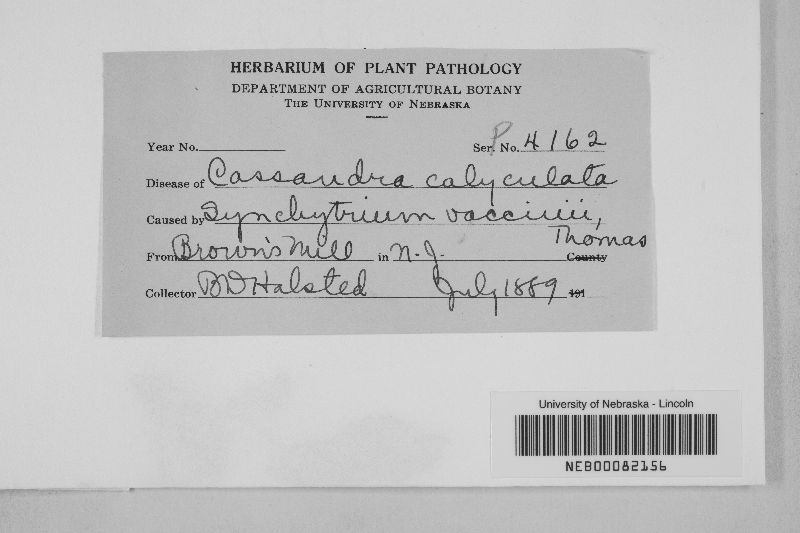 HERBARIUM OF PLANT PATHOLOGY
DEPARTMENT OF AGRICULTURAL BOTANY
THE UNIVERSITY OF NEBRASKA
Year No.
Ser. No. P 4162
Disease of Cassandra calyculata
Caused by Synchytrium vaccinii,
Thomas
From Brown's Mill in N.J. County
Collector BD Halsted July 1889 191
University of Nebraska - Lincoln
NEB00082156